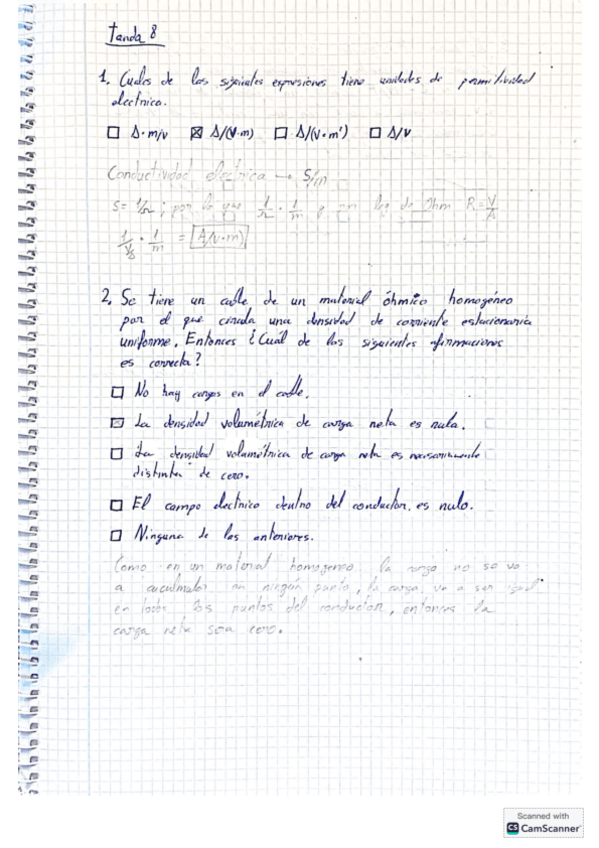 Tanda 8
1. Cuáles de las siguientes expresiones tiene unidades de permitividad
electrica.
□ A·m/v ☒ A/(V·m) □ A/(V·m²) □ A/V
Conductividad electrica → S/m
S= 1/Ω ; por lo que 1/Ω · 1/m y por ley de Ohm R=V/A
1/(V/A) · 1/m = A/(v·m)
2. Se tiene un cable de un material óhmico homogéneo
por el que circula una densidad de corriente estacionaria
uniforme. Entonces ¿Cuál de las siguientes afirmaciones
es correcta?
□ No hay cargas en el cable.
☒ La densidad volumétrica de carga neta es nula.
□ La densidad volumétrica de carga neta es necesariamente
distinta de cero.
□ El campo electrico dentro del conductor es nulo.
□ Ninguna de las anteriores.
Como en un material homogeneo la carga no se va
a acumular en ningún punto, la carga va a ser igual
en todos los puntos del conductor, entonces la
carga neta sera cero.
Scanned with
CS CamScanner